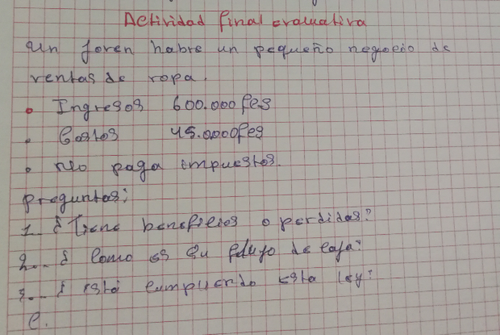 Actividad final evamativa
Un joren habre un pequeño negocio de
ventas de ropa.
• Ingresos 600.000fcs
• Costos 45.0000fcs
• No paga impuestos.
preguntas;
1.. ¿ Tiene beneficios o perdidas?
2... ¿ como es su flujo de caja?
3... ¿ está cumpliendo esta ley?